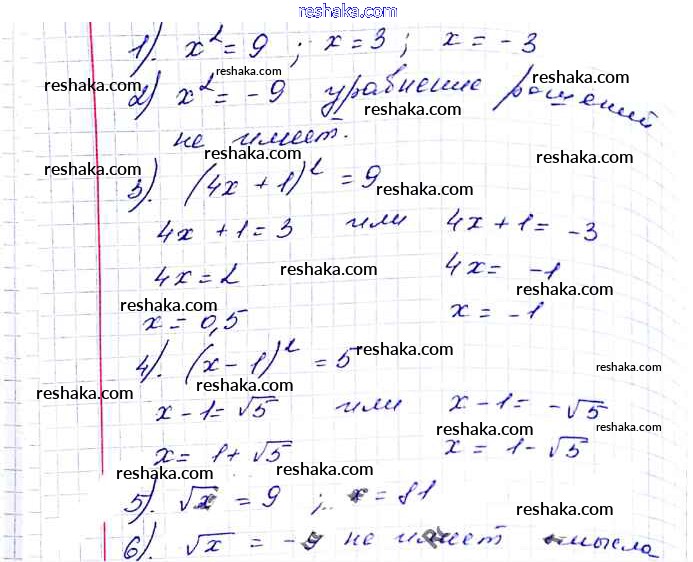 reshaka.com
1). x² = 9 ; x = 3 ; x = -3
reshaka.com reshaka.com reshaka.com
2) x² = -9 уравнение решений
reshaka.com reshaka.com
не имеет.
reshaka.com reshaka.com
reshaka.com
3). (4x + 1)² = 9
reshaka.com
4x + 1 = 3 или 4x + 1 = -3
reshaka.com reshaka.com
4x = 2 4x = -1
reshaka.com reshaka.com
reshaka.com
x = 0,5 x = -1
reshaka.com
4). (x - 1)² = 5
reshaka.com reshaka.com
x - 1 = √5 или x - 1 = -√5
reshaka.com reshaka.com
x = 1 + √5 x = 1 - √5
reshaka.com reshaka.com reshaka.com
5). √x = 9 ; x = 81
reshaka.com
6). √x = -9 не имеет смысла
reshaka.com reshaka.com